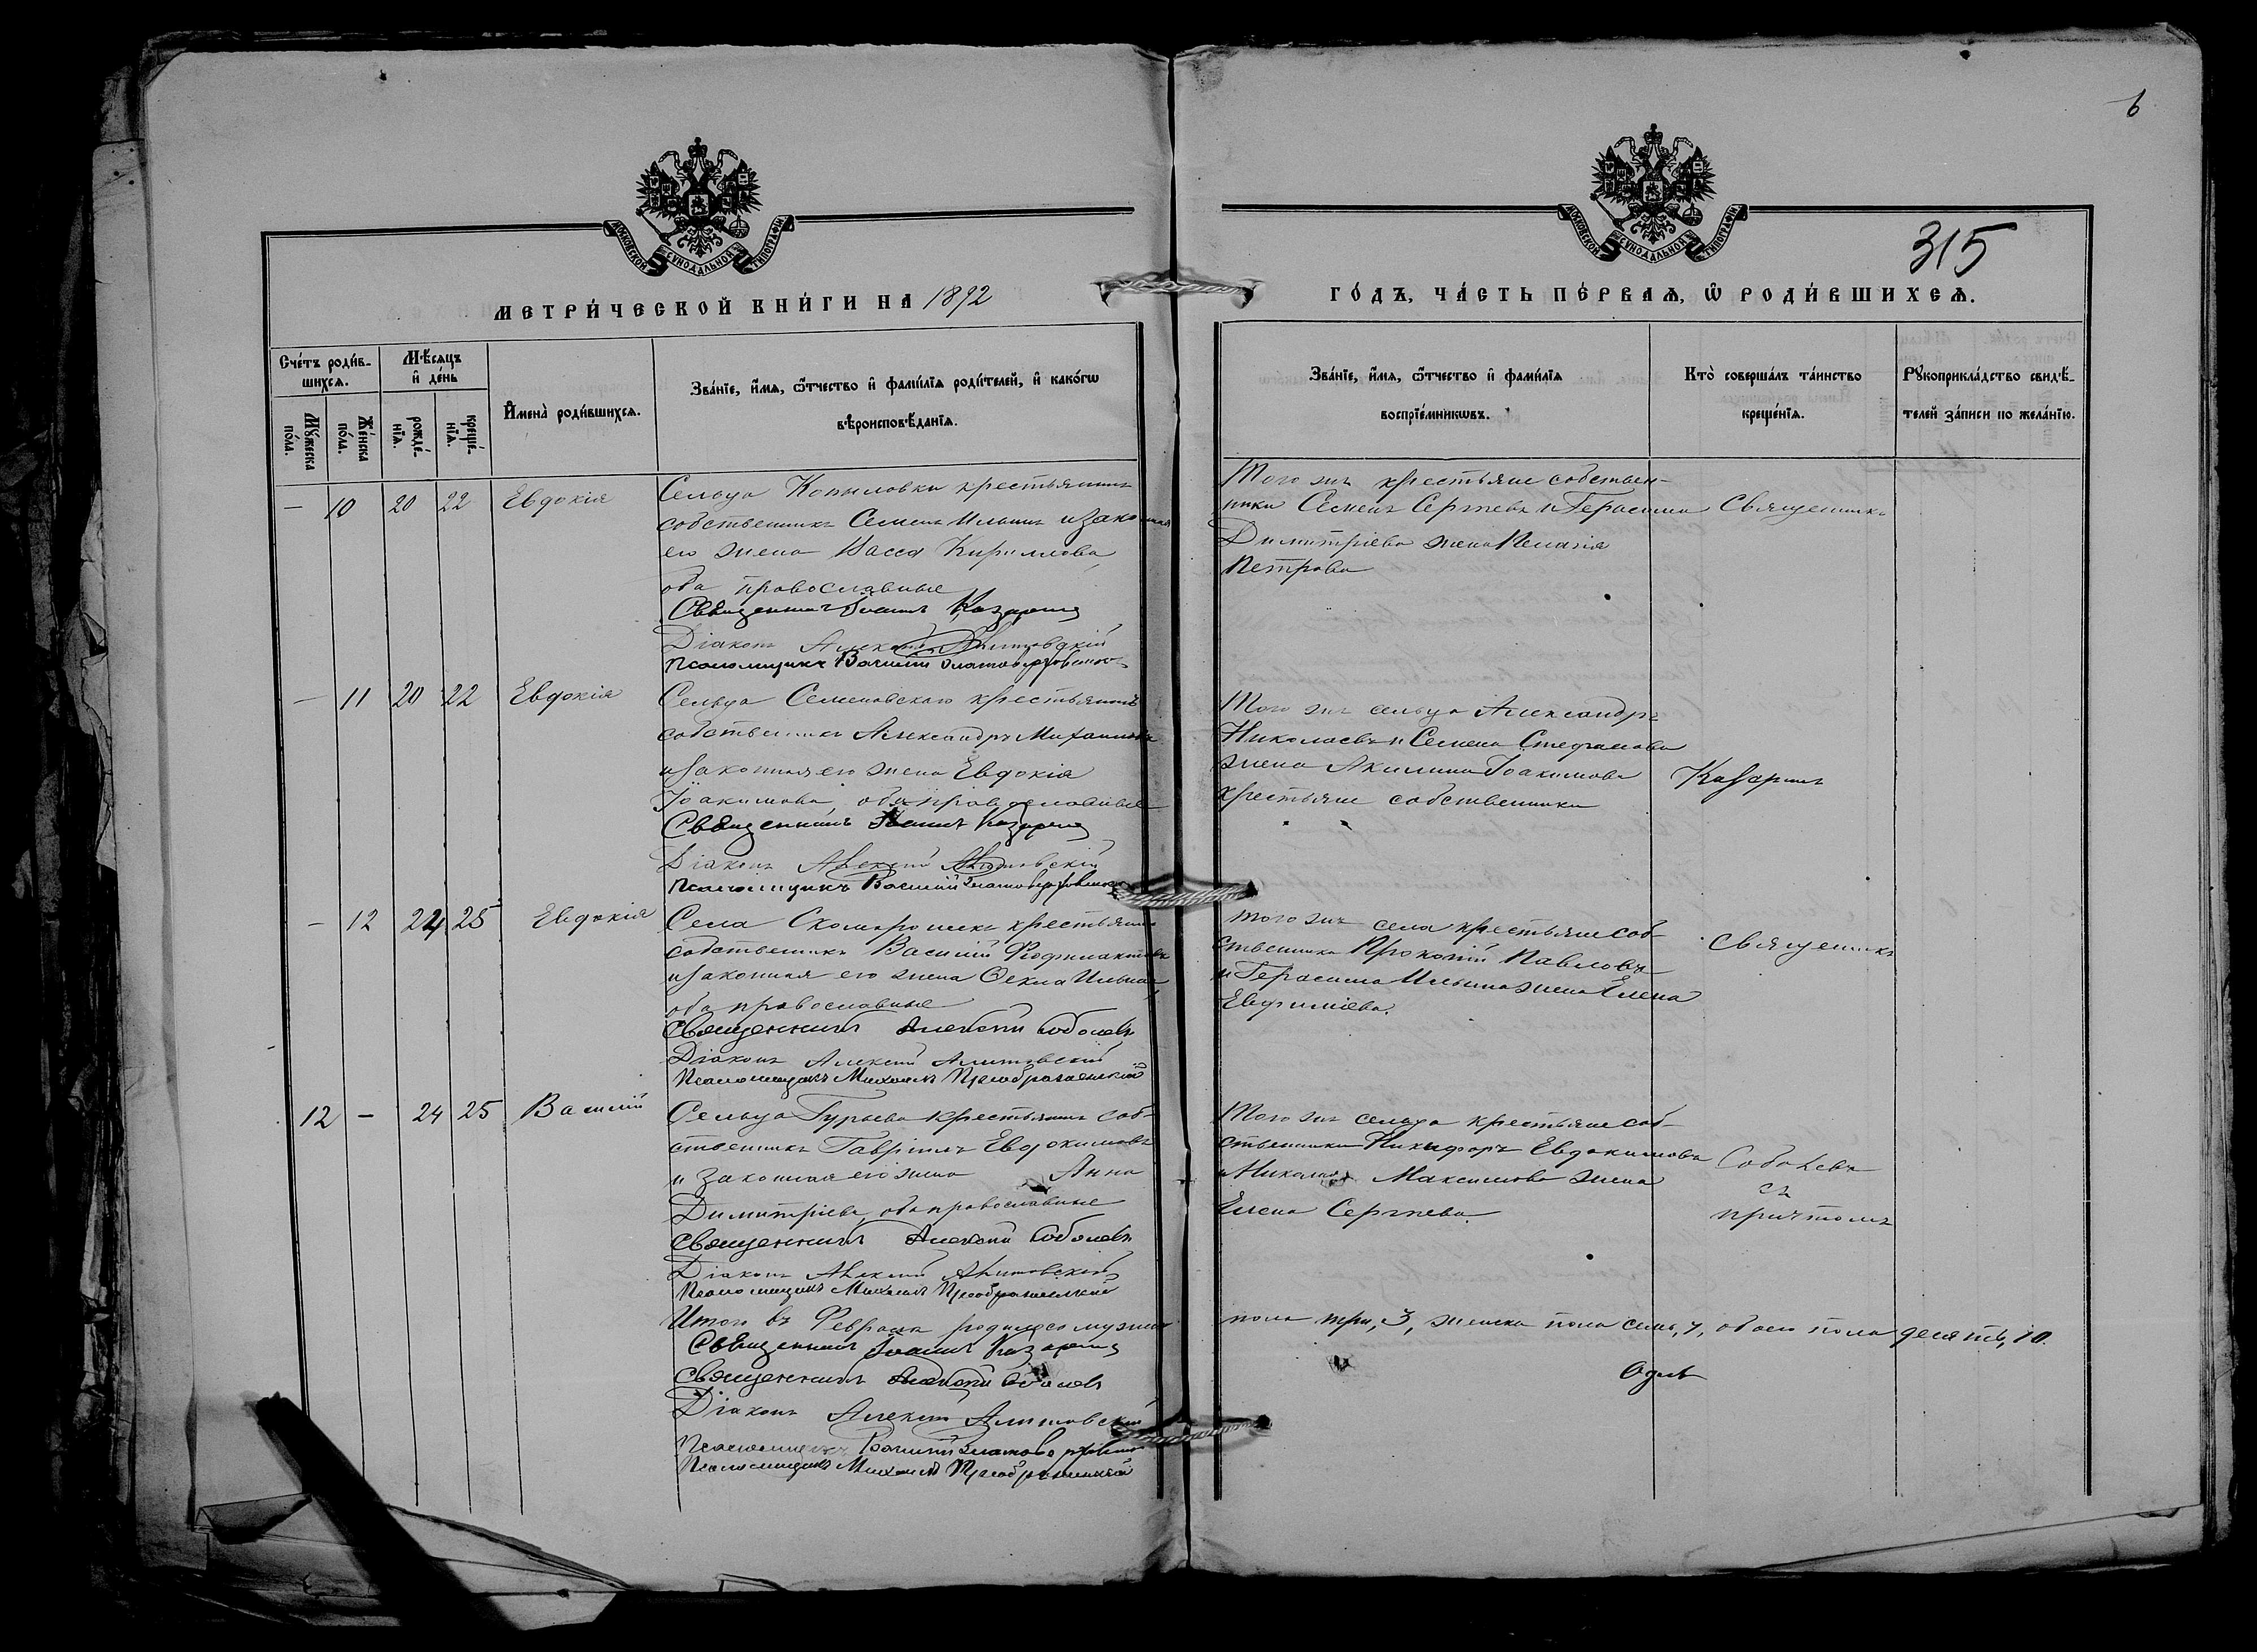 6
315
МОСКОВСКОЙ СѴНОДАЛЬНОЙ ТИПОГРАФІИ
МОСКОВСКОЙ СѴНОДАЛЬНОЙ ТИПОГРАФІИ
МЕТРИ́ЧЕСКОЙ КНИ́ГИ НА 1892
ГО́ДЪ, ЧА́СТЬ ПЕ́РВАѦ, Ѡ РОДИ́ВШИХСѦ.
Сче́тъ роди́в-
шихсѧ.
Мꙋ́жеска
по́ла.
Же́нска
по́ла.
Мѣ́сѧцъ
и҆ де́нь
рожде́-
нїѧ.
креще́-
нїѧ.
И҆мена̀ роди́вшихсѧ.
Зва́нїе, и҆́мѧ, ѻ҆́тчество и҆ фамі́лїѧ роди́телей, и҆ како́гѡ
вѣроисповѣ́данїѧ.
Зва́нїе, и҆́мѧ, ѻ҆́тчество и҆ фамі́лїѧ
воспрїе́мникѡвъ.
Кто̀ соверша́лъ та́инство
креще́нїѧ.
Рꙋкоприкла́дство свидѣ́-
телей за́писи по жела́нїю.
— 10 20 22 Евдокія
Сельца Копыловки крестьянинъ
собственникъ Семенъ Ильинъ и законная
его жена Васса Кириллова,
оба православные
Священникъ Іоаннъ Казаринъ
Діаконъ Алексій
Псаломщикъ Василій
Того же крестьяне собствен-
ники Семенъ Сергѣевъ и Герасима
Димитріева жена Пелагія
Петрова
Священникъ
— 11 20 22 Евдокія
Сельца Семеновскаго крестьянинъ
собственникъ Александръ Михаиловъ
и законная его жена Евдокія
Іоакимова, оба православные
Священникъ Іоаннъ Казаринъ
Діаконъ Алексій
Псаломщикъ Василій
Того же сельца Александръ
Николаевъ и Семена Стефанова
жена Акилина Іоакимова
крестьяне собственники
Казаринъ
— 12 24 25 Евдокія
Села крестьянинъ
собственникъ Василій Феофилактовъ
и законная его жена Ѳекла Ильина
оба православные
Священникъ Алексій Соболевъ
Діаконъ Алексій
Псаломщикъ Михаилъ Преображенскій
Того же села крестьяне соб-
ственники Прокопій Павловъ
и Герасима Ильина жена Елена
Евфиміева.
Священникъ
12 — 24 25 Василій
Сельца Гурьева крестьянинъ соб-
ственникъ Гавріилъ Евдокимовъ
и законная его жена Анна
Димитріева, оба православные
Священникъ Алексій Соболевъ
Діаконъ Алексій
Псаломщикъ Михаилъ Преображенскій
Того же сельца крестьяне соб-
ственники Никифоръ Евдокимовъ
и Николая Максимова жена
Елена Сергѣева.
Соболевъ
съ
причтомъ
Итого въ Февралѣ родилось мужеска
пола три, 3, женска пола семь, 7, обоего пола десять, 10.
Священникъ Іоаннъ Казаринъ
Священникъ Алексій Соболевъ
Діаконъ Алексій
Псаломщикъ Василій
Псаломщикъ Михаилъ Преображенскій